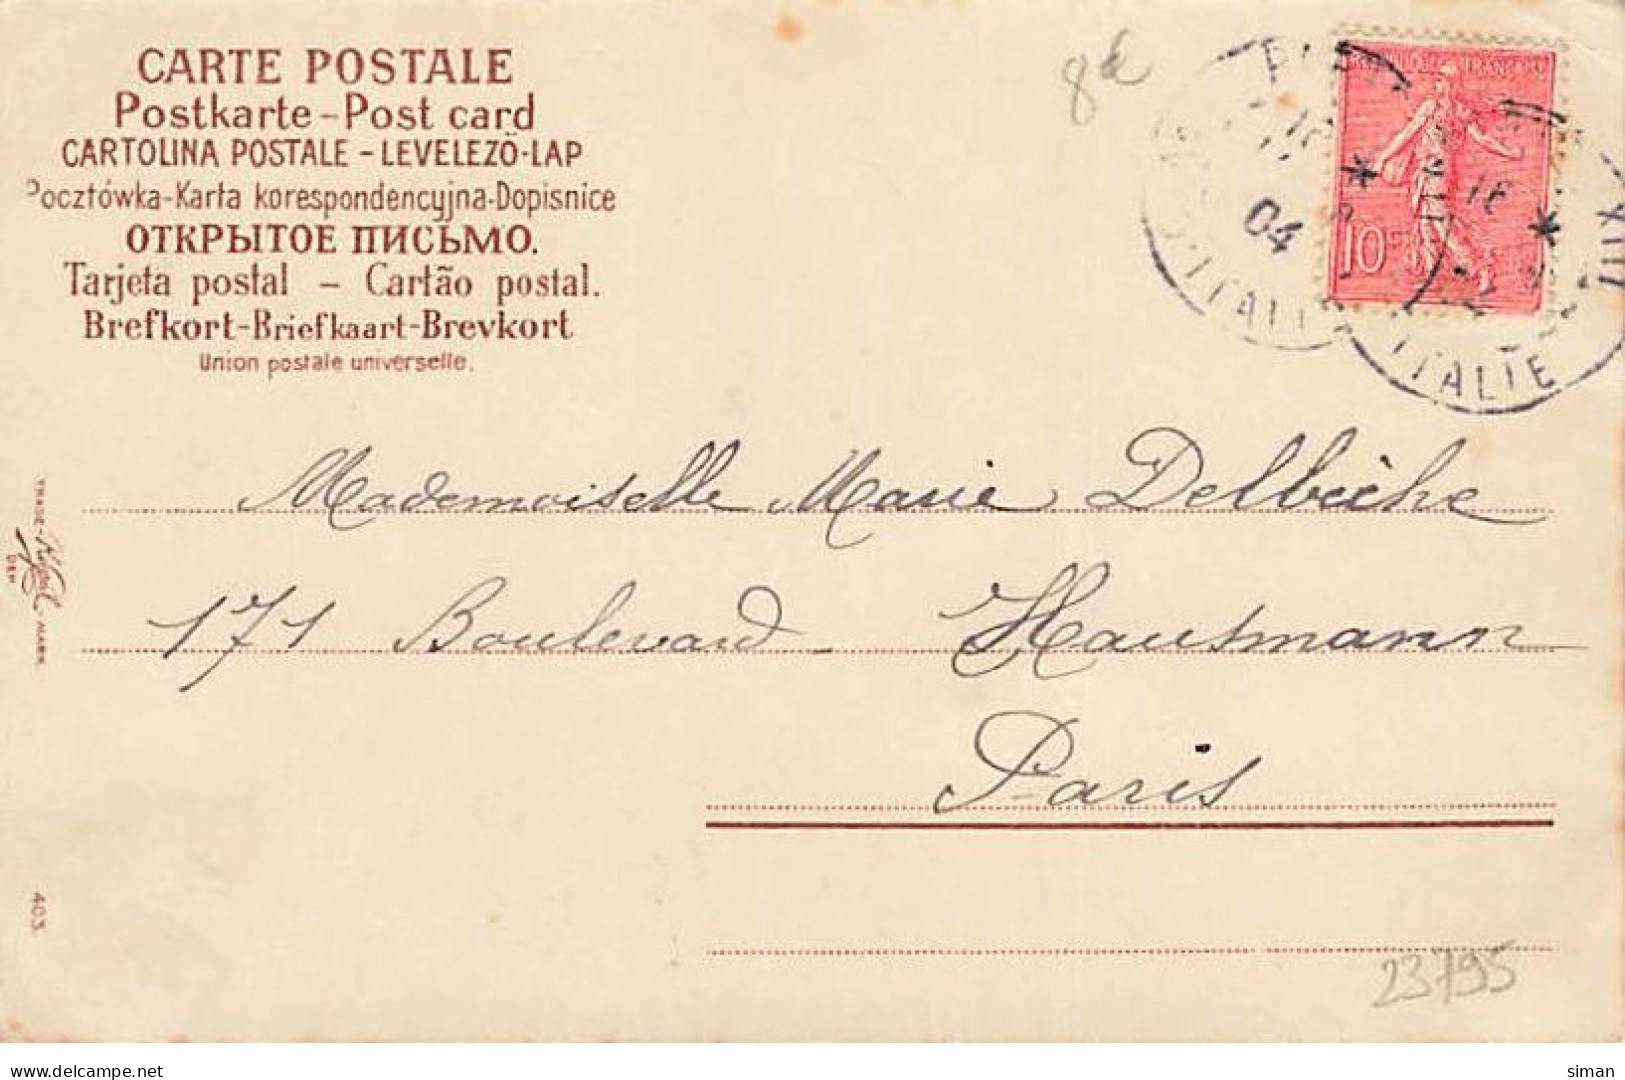 CARTE POSTALE
Postkarte-Post card
CARTOLINA POSTALE - LEVELEZŐ-LAP
Pocztówka-Karta korespondencyjna-Dopisnice
ОТКРЫТОЕ ПИСЬМО.
Tarjeta postal - Cartão postal.
Brefkort-Briefkaart-Brevkort
Union postale universelle.
8k
FRANÇAISE
10
04
16
XIII
ITALIE
D'ITALIE
Mademoiselle Marie Delbèche
171 Boulevard - Hausmann
Paris
TRADE-MARK
DEP
403
23795
siman
www.delcampe.net